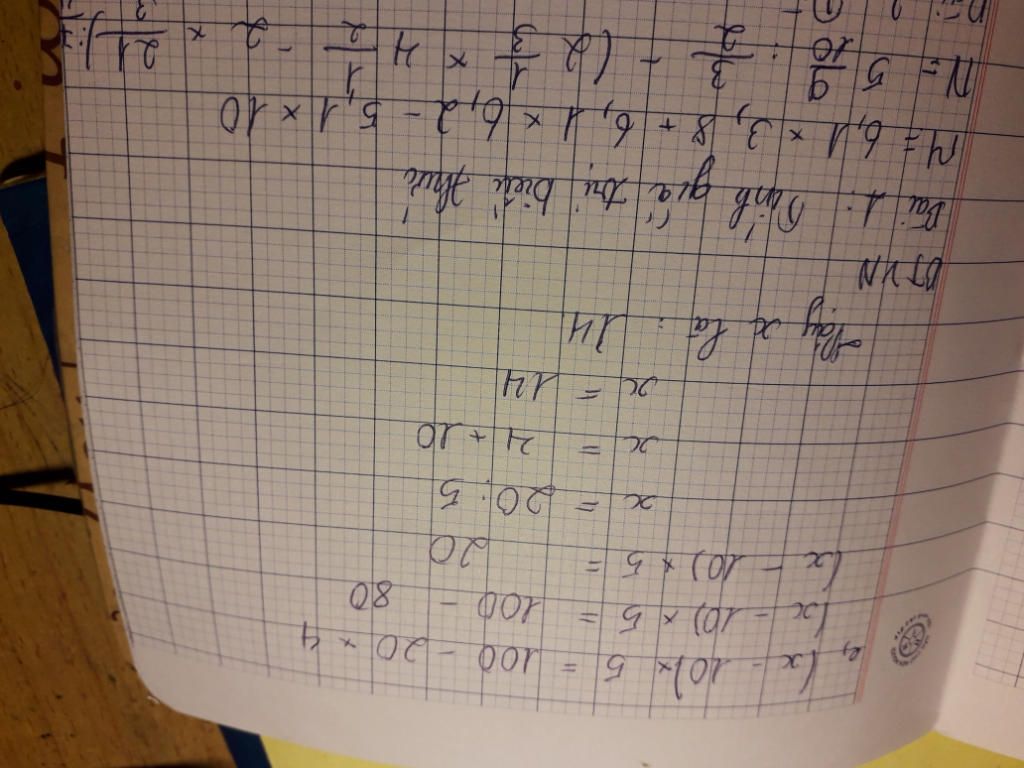 e, (x - 10) × 5 = 100 - 20 × 4
(x - 10) × 5 = 100 - 80
(x - 10) × 5 = 20
x = 20 : 5
x = 4 + 10
x = 14
Vậy x là : 14
BTVN
Bài 1 : Tính giá trị biểu thức
M = 6,1 × 3,8 + 6,1 × 6,2 - 5,1 × 10
N = 5 9/10 : 3/2 - (2 1/3 × 4 1/2 - 2 × 21/3) :